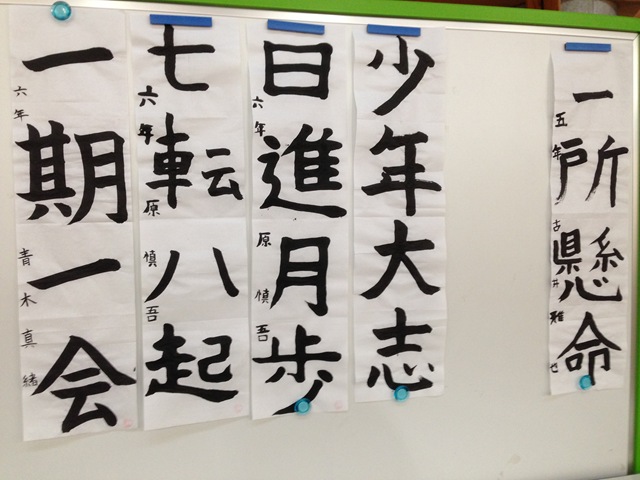 一所懸命
五年 古井雅
少年大志
日進月歩
六年 原慎吾
七転八起
六年 原慎吾
一期一会
六年 青木真緒